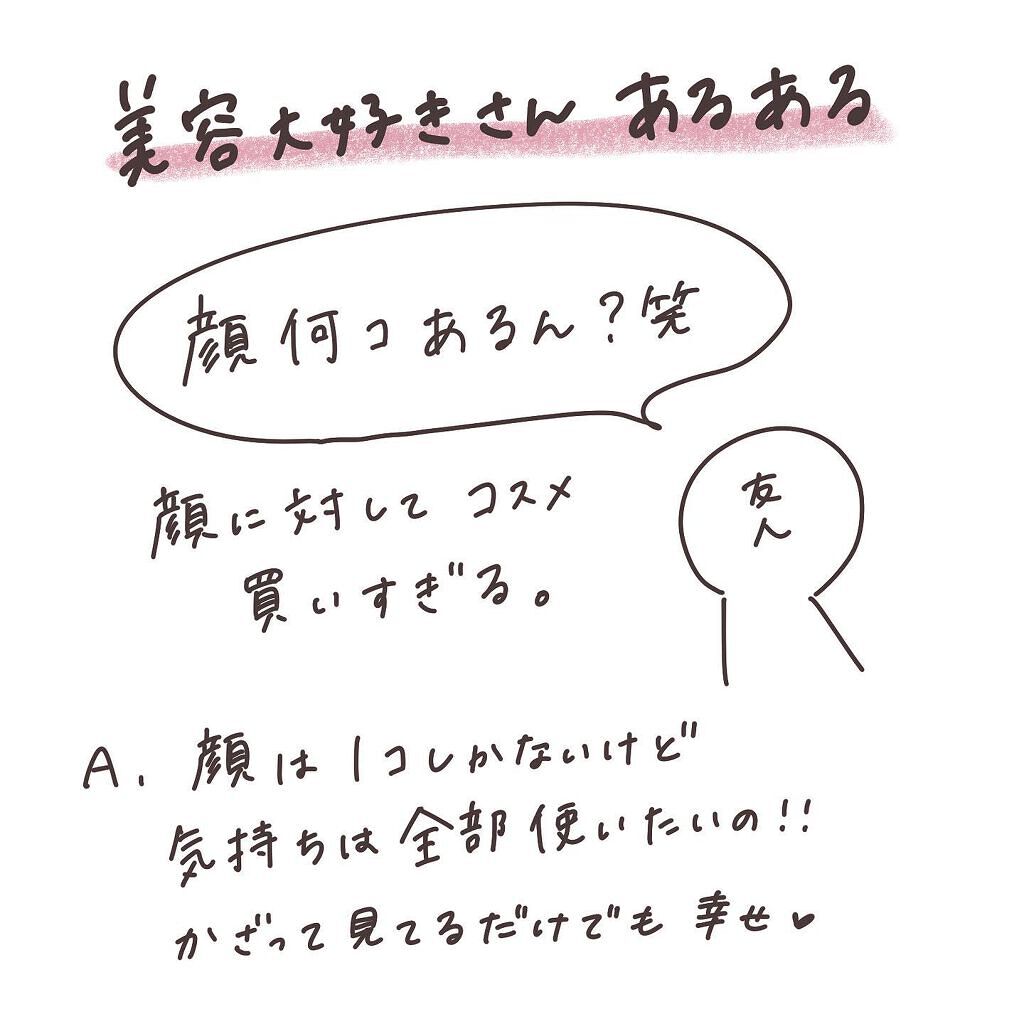 美容大好きさん あるある
顔何コあるん?笑
友人
顔に対して コスメ
買いすぎる。
A. 顔は1コしかないけど
気持ちは全部使いたいの!!
かざって見てるだけでも 幸せ♥